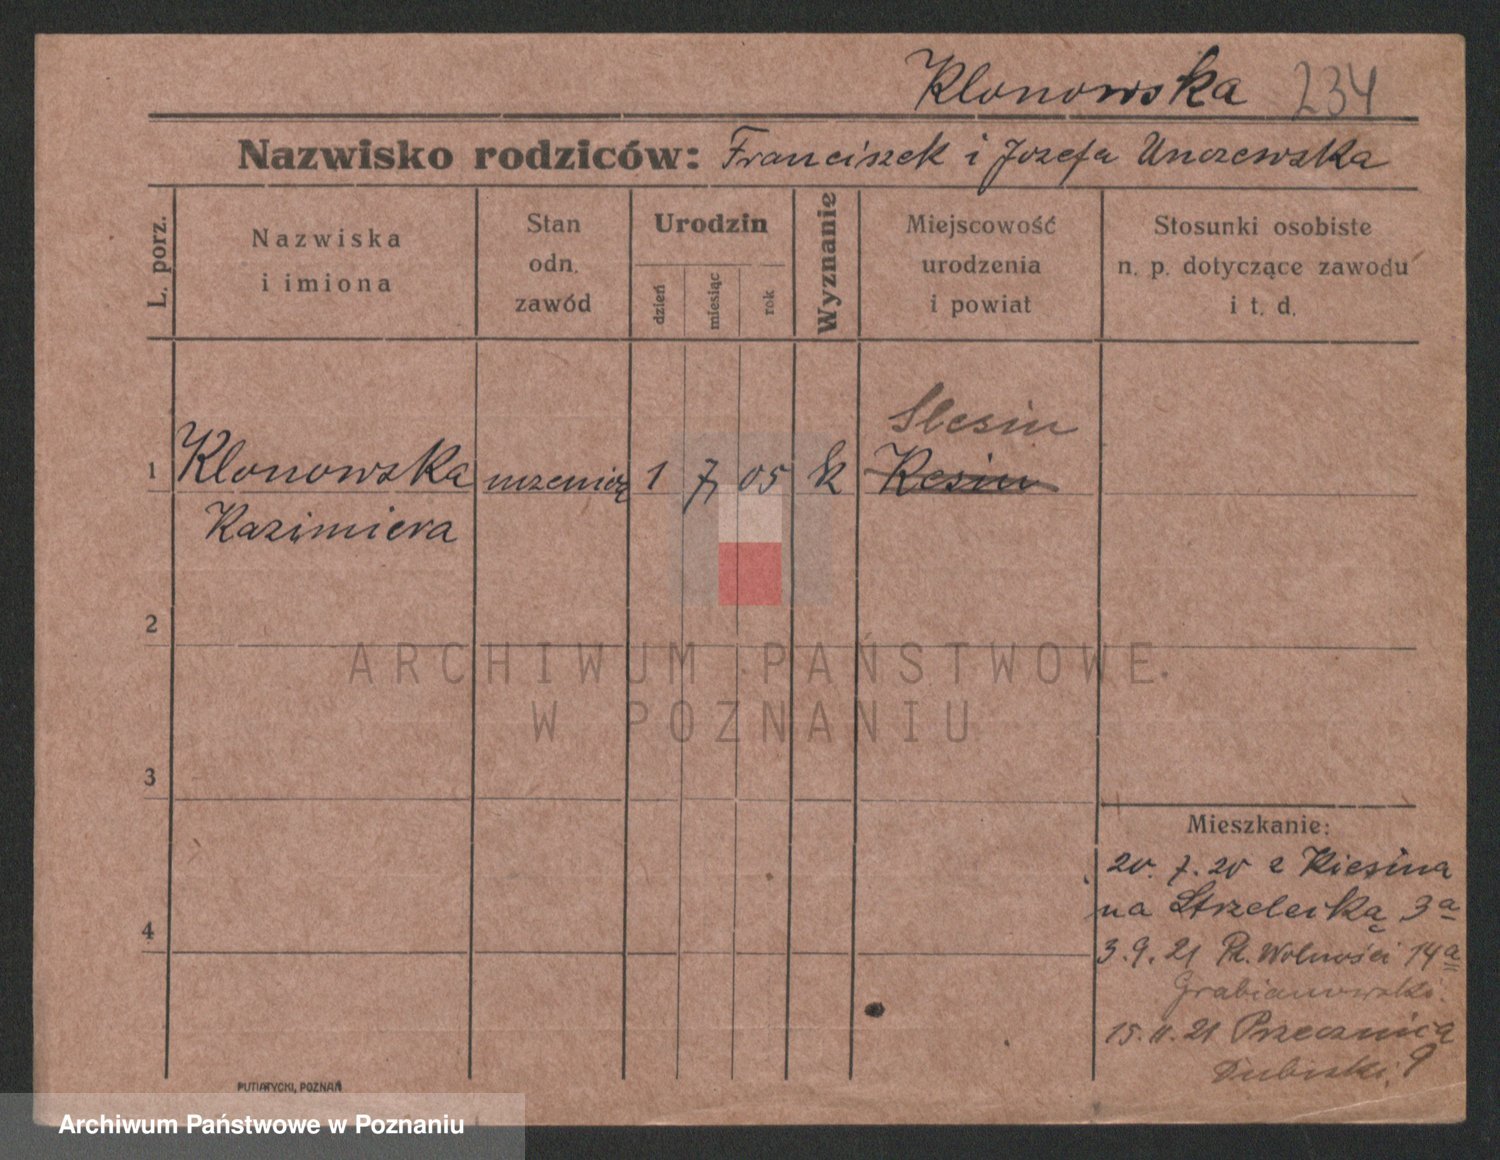 Klonowska 234
Nazwisko rodziców: Franciszek i Józefa Unczewska
L. porz.
Nazwiska
i imiona
Stan
odn.
zawód
Urodzin
dzień
miesiąc
rok
Wyznanie
Miejscowość
urodzenia
i powiat
Stosunki osobiste
n. p. dotyczące zawodu
i t. d.
Slesin
1 Klonowska 1 7 05 k Kesin
Kazimiera
2
ARCHIWUM PAŃSTWOWE
W POZNANIU
3
Mieszkanie:
20. 7. 20 z Kiesina
na Strzelecką 3a
4
3. 9. 21 Pl. Wolności 14a
Grabianowski.
15. 11. 21 Przecznica
Dubiski, 9
PUTIATYCKI, POZNAŃ
Archiwum Państwowe w Poznaniu